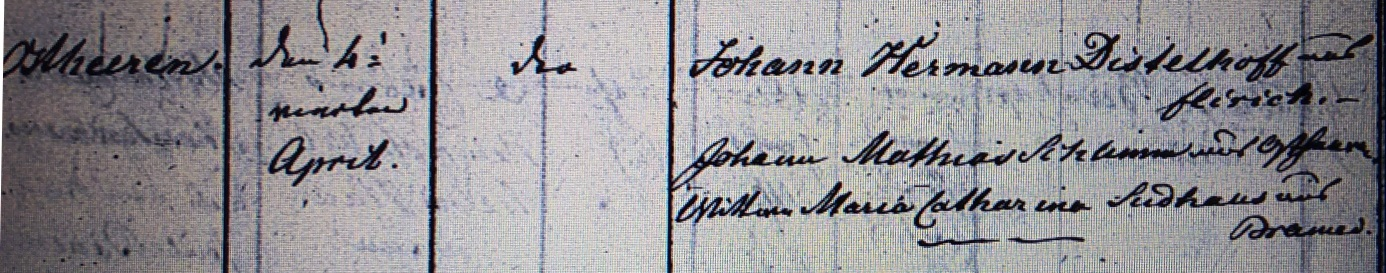 Ostheeren.
den 4ten
vierten
April.
do
Johann Hermann Distelhoff aus
flirich. –
Johann Mathias Schumm aus Ostheeren
Wittwe Maria Catharina Sudhaus aus
Dramed.